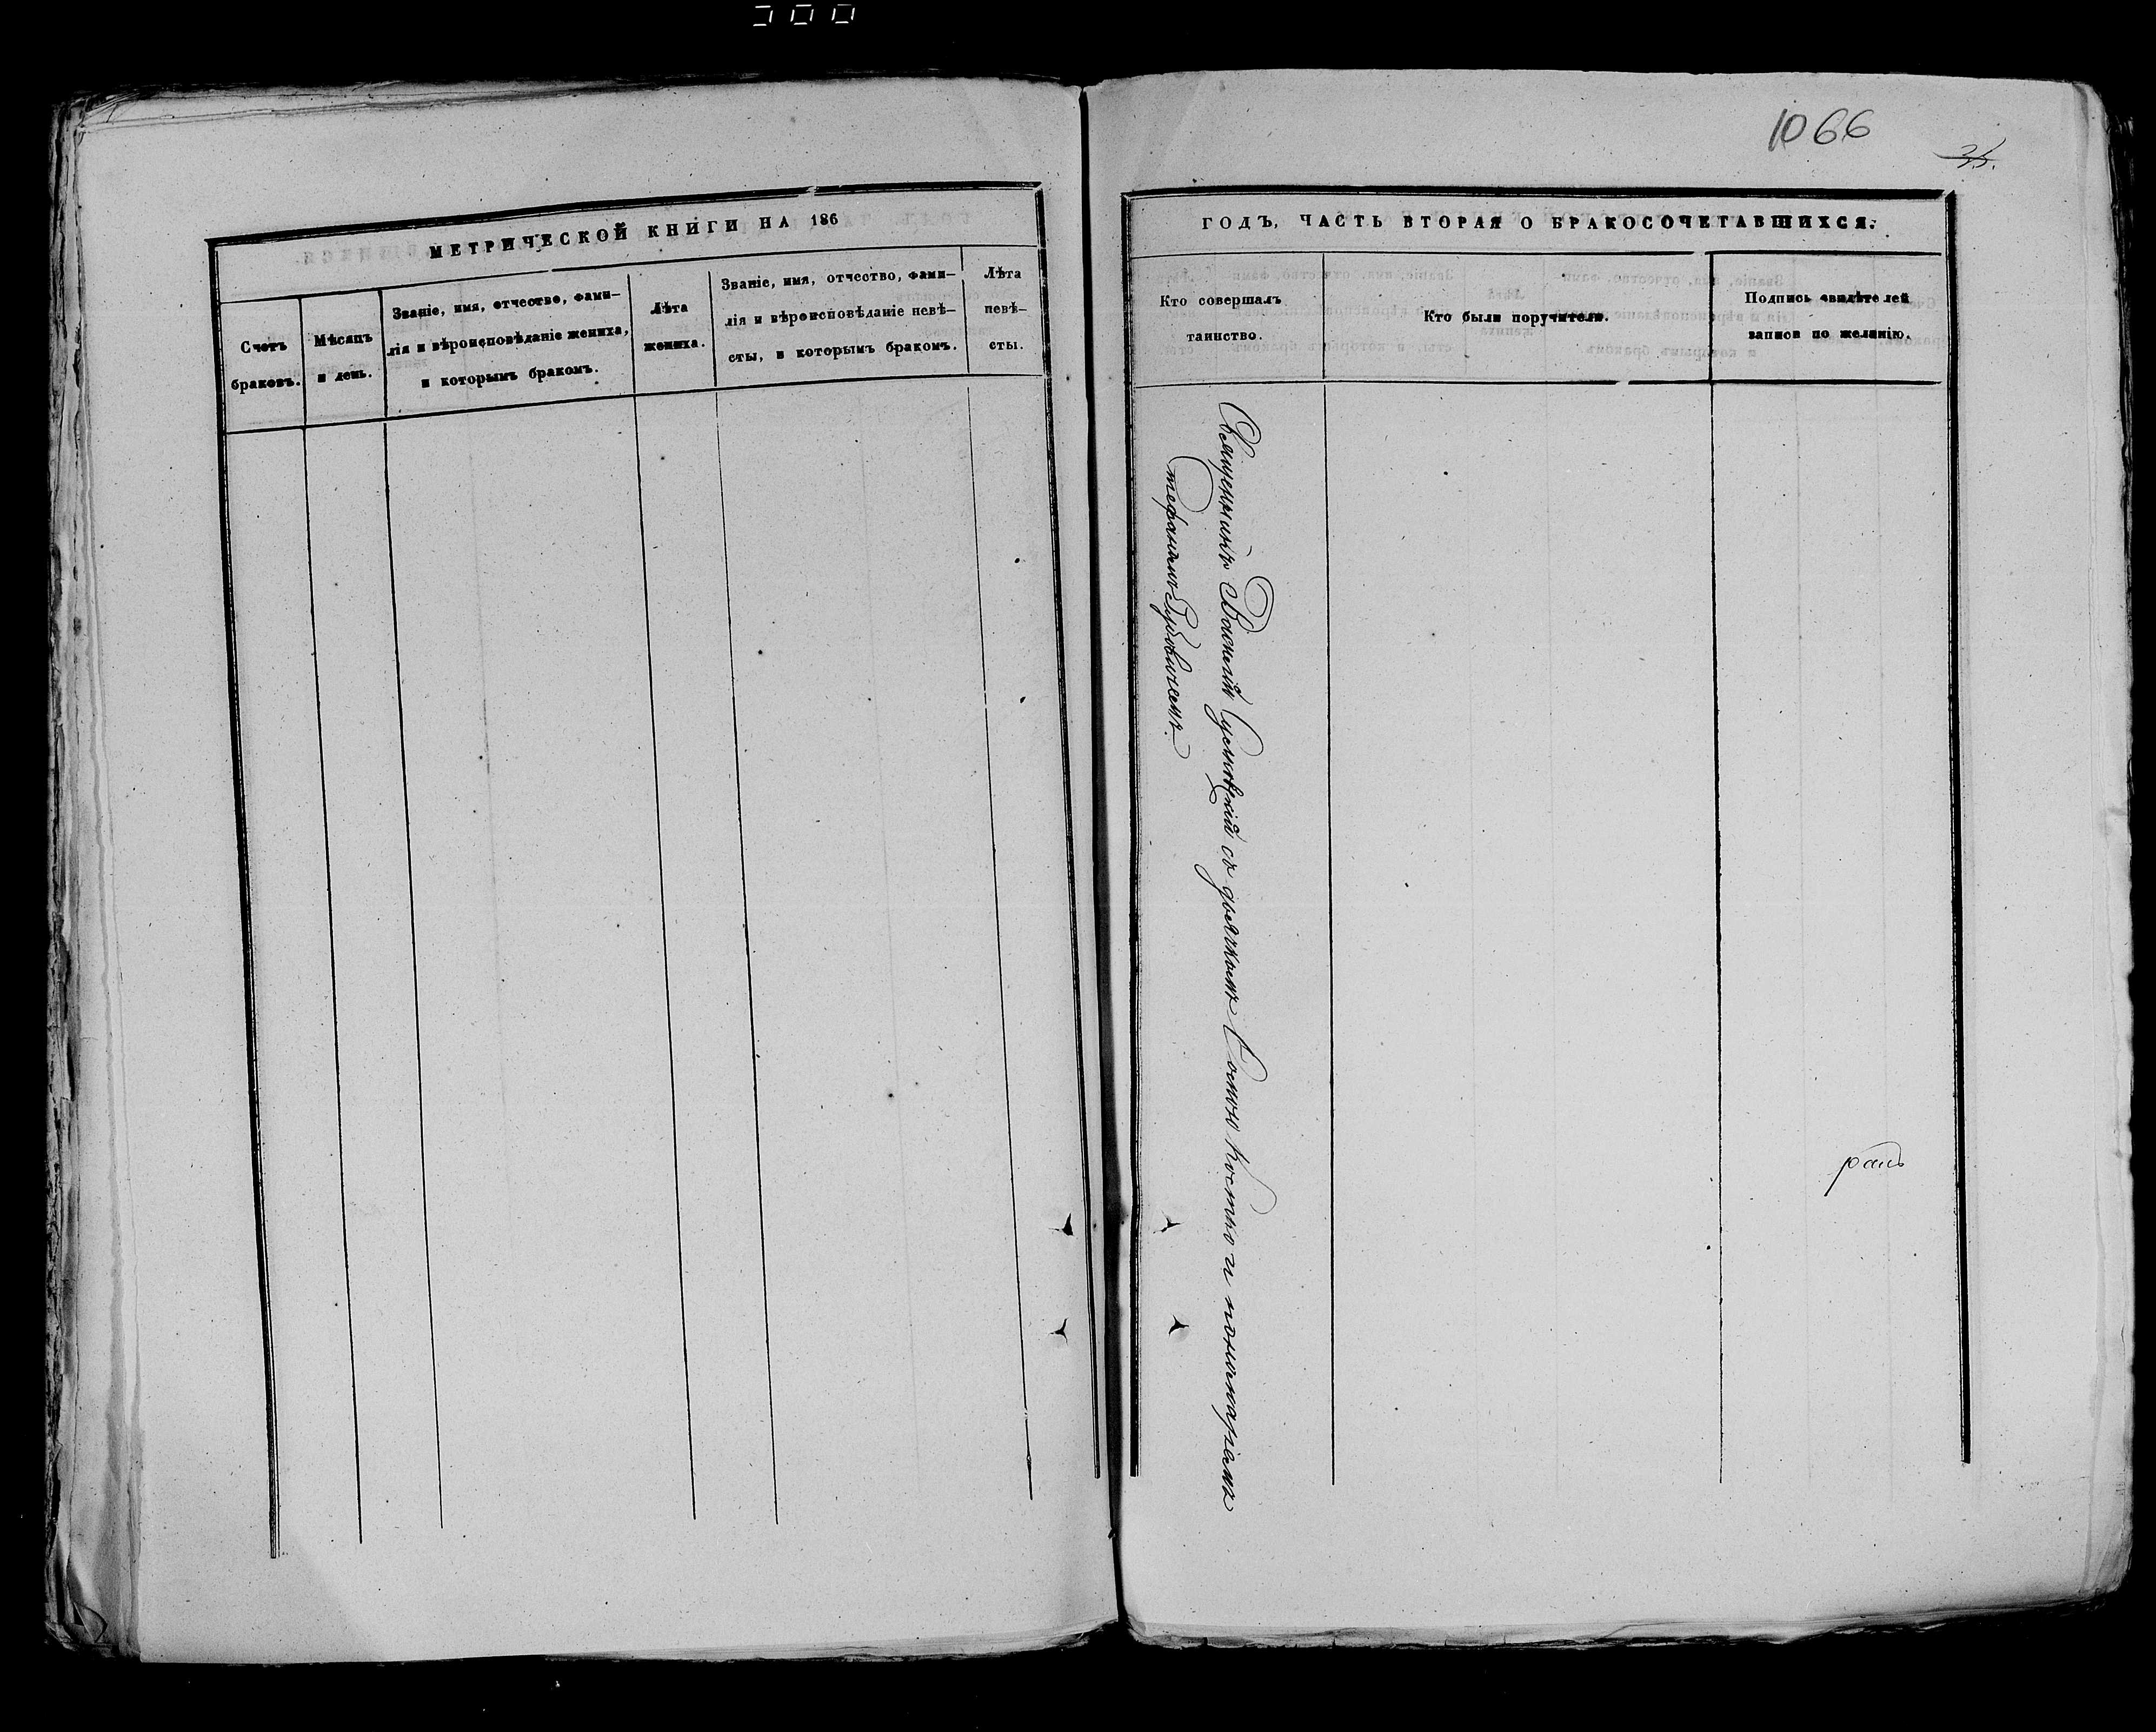 1066
МЕТРИЧЕСКОЙ КНИГИ НА 186
Счетъ
браковъ.
Мѣсяцъ
и день.
Званіе, имя, отчество, фами-
лія и вѣроисповѣданіе жениха,
и которымъ бракомъ.
Лѣта
жениха.
Званіе, имя, отчество, фами-
лія и вѣроисповѣданіе невѣ-
сты, и которымъ бракомъ.
Лѣта
невѣ-
сты.
ГОДЪ, ЧАСТЬ ВТОРАЯ О БРАКОСОЧЕТАВШИХСЯ.
Кто совершалъ
таинство.
Кто были поручители.
Подпись свидѣтелей
записи по желанію.
Священникъ Василій съ дьячкомъ и пономаремъ